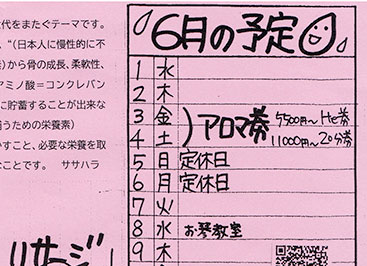 代をまたぐテーマです。
、“(日本人に慢性的に不
)から骨の成長、柔軟性、
アミノ酸=コンクレバン
に貯蓄することが出来な
補うための栄養素)
かすこと、必要な栄養を取
なことです。 ササハラ
リサージ
6月の予定
1 水
2 木
3 金
4 土
アロマ券 7500円〜
11000円〜20分券
5 日 定休日
6 月 定休日
7 火
8 水 お琴教室
9 木